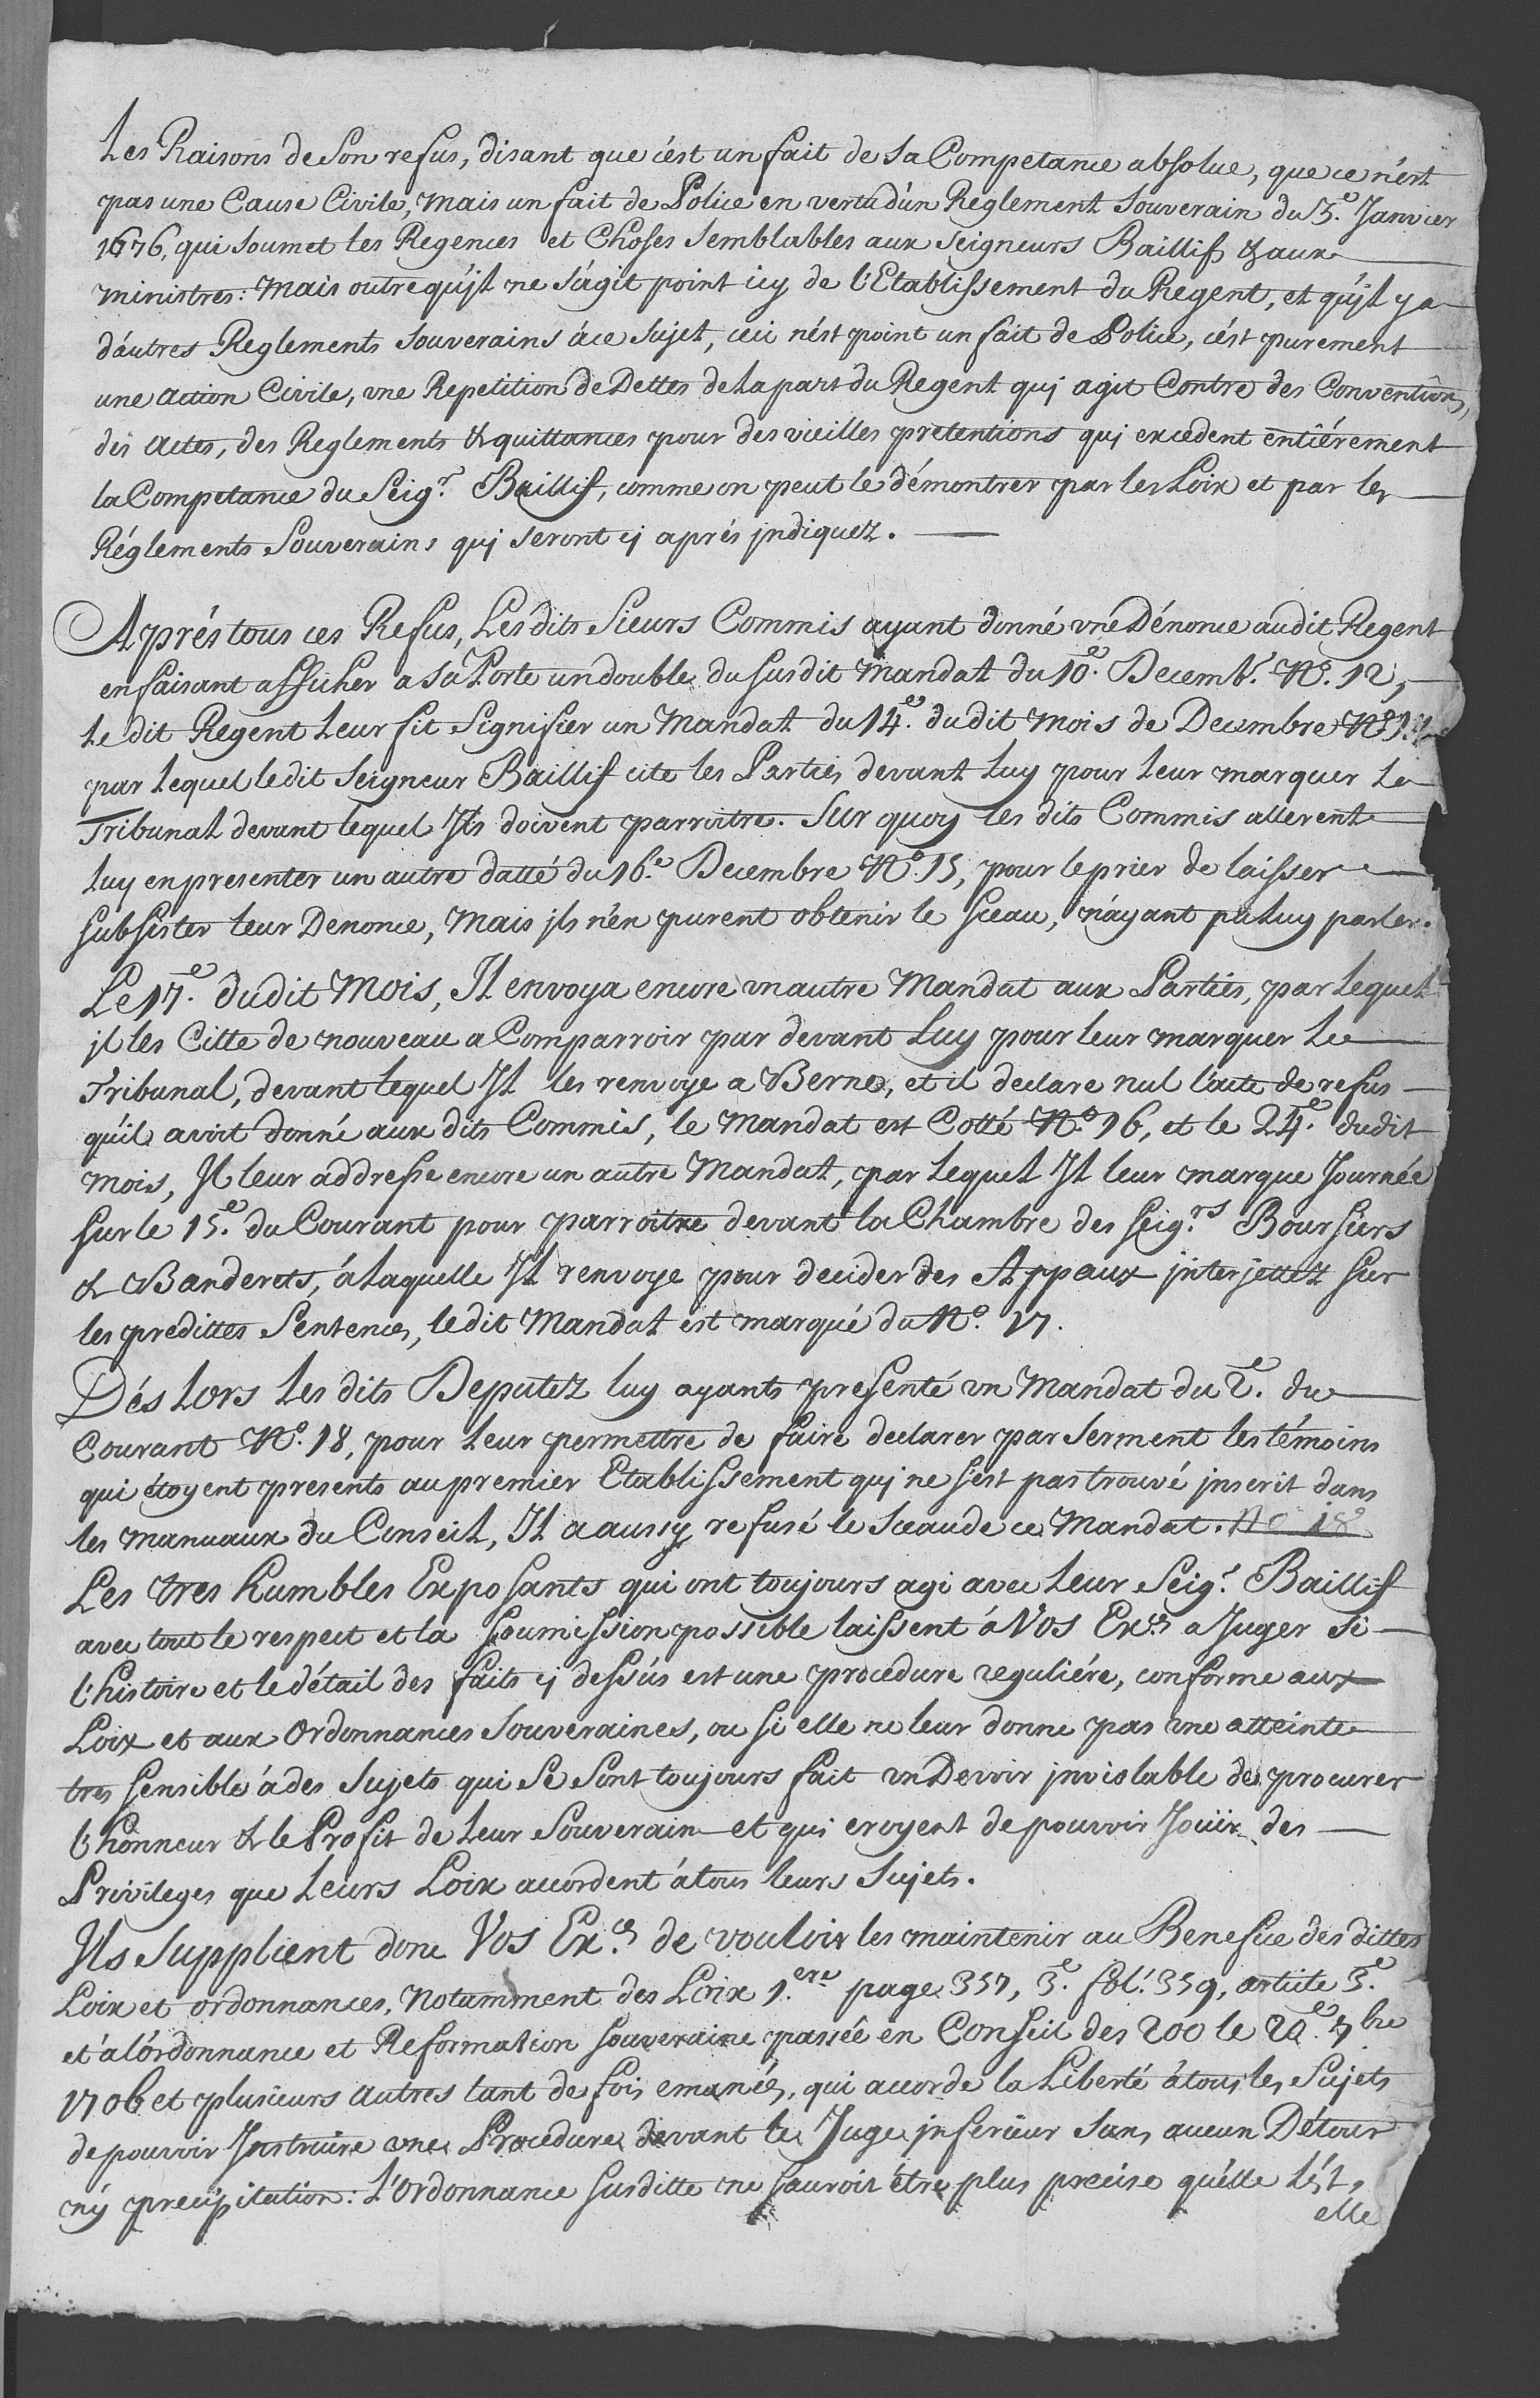 Les Raisons de Son refus, disant que c'est un fait de sa Competance absolue, que ce n'est
pas une Cause Civile, mais un fait de Police en vertu d'un Reglement Souverain du 3.e Janvier
1676, qui soumet les Regences et Choses semblables aux Seigneurs Baillifs & aux
ministres: Mais outre qu'jl ne s'agit point icy de l'Etablissement du Regent, et qu'jl y a
d'autres Reglements souverains à ce sujet, ceci n'est point un fait de Police, c'est purement
une action Civile, vne Repetition de Dettes de la part du Regent quj agit Contre des Conventions,
des actes, des Reglements & quittances pour des vieilles pretentions quj excedent entiérement
la Competance du Seig.r Baillif, comme on peut le démontrer par les Loix et par les
Réglements Souverains quj seront cj aprés jndiquez.
Aprés tous ces Refus, Les dits Sieurs Commis ayant donné vne Dénonce audit Regent
en faisant afficher a sa Porte un double du susdit Mandat du 10.e Decemb.r N.o 12,
Le dit Regent leur fit Signifier un Mandat du 14.e dudit mois de Decembre
par lequel ledit Seigneur Baillif cite les Parties devant luy pour leur marquer le
Tribunal devant lequel Jls doivent parroitre. Sur quoy les dits Commis allerent
luy en presenter un autre datté du 16.e Decembre N.o 15, pour le prier de laisser
subsister leur Denonce, Mais jls n'en purent obtenir le sceau, n'ayant pu luy parler.
Le 17.e dudit Mois, Jl envoya encore vn autre Mandat aux Parties, par lequel
jl les Citte de nouveau a Comparroir par devant Luy pour leur marquer le
Tribunal, devant lequel Jl les renvoye a Berne, et il declare nul l'acte de refus
qu'il avoit donné aux dits Commis, le Mandat est Cotté N.o 16, et le 24.e dudit
mois, Jl leur addresse encore un autre Mandat, par lequel Jl leur marque Journée
sur le 15.e du Courant pour parroitre devant la Chambre des Seig.rs Boursiers
& Banderets, à laquelle Jl renvoye pour decider des Appaux jnterjettez sur
les predittes Sentences, le dit Mandat est marqué du N.o 17.
Dés Lors les dits Deputez luy ayants presenté vn Mandat du 2.e du
Courant N.o 18, pour leur permettre de faire declarer par serment les témoins
qui étoyent presents au premier Etablissement quj ne s'est pas trouvé jnscrit dans
les manuaux du Conseil, Jl a aussy refusé le sceau de ce Mandat. No 18
Les tres humbles Exposants qui ont toujours agi avec leur Seig.r Baillif
avec tout le respect et la soumission possible laissent à Vos Ex.ces a Juger si
l'histoire et le détail des faits cj dessus est une procedure reguliére, conforme aux
Loix et aux Ordonnances Souveraines, ou si elle ne leur donne pas vne atteinte
tres sensible à des Sujets qui se sont toujours fait vn Devoir jnviolable de procurer
l'honneur & le Profit de leur Souverain et qui croyent de pouvoir Jouïr des
Privileges que Leurs Loix accordent à tous leurs Sujets.
Jls Supplient donc Vos Ex.ces de vouloir les maintenir au Benefice des dittes
Loix et ordonnances, Notamment des Loix 1.ere page 357, 3.e fol. 359, article 3.e
et à l'ordonnance et Reformation souveraine passée en Conseil des 200 le 7bre
1706 et plusieurs autres tant de fois emanées, qui accorde la Liberté à tous les Sujets
de pouvoir Jnstruire vne Procedure devant le Juge jnferieur sans aucun Détour
ny precipitation: L'Ordonnance susditte ne sauroit être plus precise qu'elle l'est,
elle